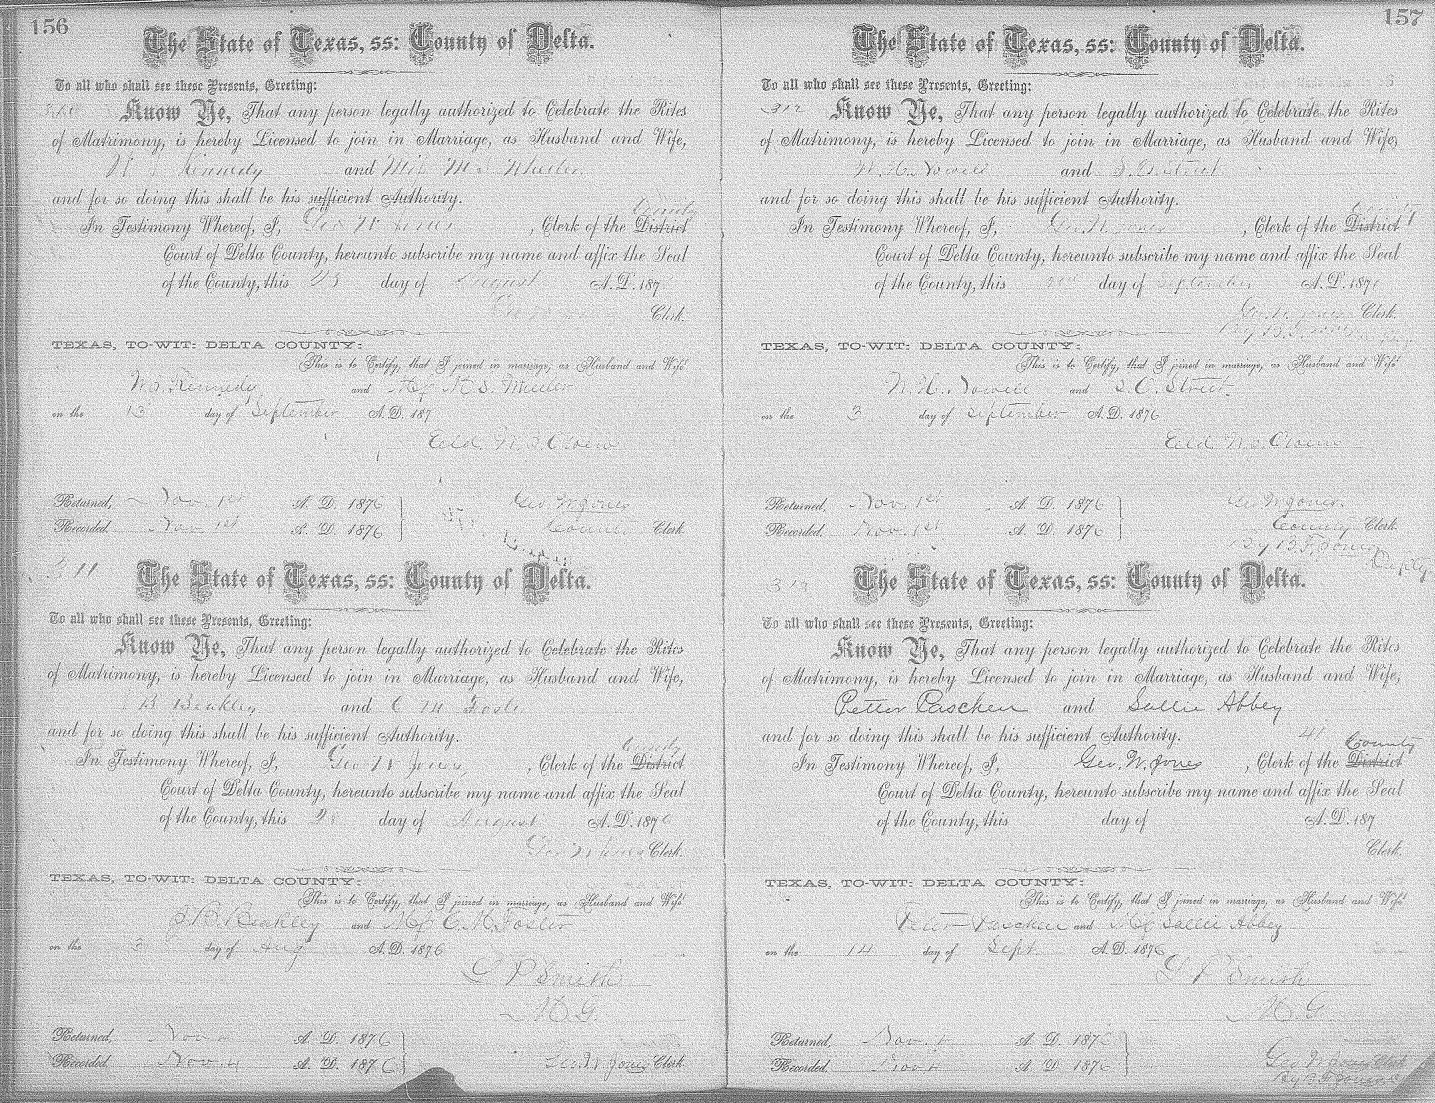 156
The State of Texas, ss: County of Delta.
To all who shall see these Presents, Greeting:
310 Know Ye, That any person legally authorized to Celebrate the Rites
of Matrimony, is hereby Licensed to join in Marriage, as Husband and Wife,
Kennedy and Miss M S Wheeler
and for so doing this shall be his sufficient Authority.
County
In Testimony Whereof, I, Geo W Jones, Clerk of the District
Court of Delta County, hereunto subscribe my name and affix the Seal
of the County, this 23 day of August A.D. 187
Clerk.
TEXAS, TO-WIT: DELTA COUNTY:
This is to Certify, that I joined in marriage, as Husband and Wife
Kennedy and M S Wheeler
on the 13 day of September A.D. 187
Eld
Returned, Nov. 1st A. D. 1876 Geo. W Jones
Recorded, Nov 1st A. D. 1876 County Clerk.
311 The State of Texas, ss: County of Delta.
To all who shall see these Presents, Greeting:
Know Ye, That any person legally authorized to Celebrate the Rites
of Matrimony, is hereby Licensed to join in Marriage, as Husband and Wife,
B Beakley and C M Foster
and for so doing this shall be his sufficient Authority.
County
In Testimony Whereof, I, Geo W Jones, Clerk of the District
Court of Delta County, hereunto subscribe my name and affix the Seal
of the County, this day of August A.D. 1876
Geo W Jones Clerk.
TEXAS, TO-WIT: DELTA COUNTY:
This is to Certify, that I joined in marriage, as Husband and Wife
B Beakley and C. M. Foster
on the 3 day of Aug A.D. 1876
P Smith
M. G.
Returned, Nov 4 A. D. 1876
Recorded, Nov. 4 A. D. 1876 Geo. W. Jones Clerk
157
The State of Texas, ss: County of Delta.
To all who shall see these Presents, Greeting:
312 Know Ye, That any person legally authorized to Celebrate the Rites
of Matrimony, is hereby Licensed to join in Marriage, as Husband and Wife,
Nowell and Street
and for so doing this shall be his sufficient Authority.
In Testimony Whereof, I, Geo. W. Jones, Clerk of the District
Court of Delta County, hereunto subscribe my name and affix the Seal
of the County, this day of September A.D. 187
Geo. W Jones Clerk.
By B.F. Jones
TEXAS, TO-WIT: DELTA COUNTY:
This is to Certify, that I joined in marriage, as Husband and Wife
Nowell and S. C. Street.
on the 3 day of September A.D. 1876
Eld
Returned, Nov. 1st A. D. 1876 Geo W Jones.
Recorded, Nov. 1st A. D. 1876 County Clerk.
By B. F. Jones
Deputy
The State of Texas, ss: County of Delta.
To all who shall see these Presents, Greeting:
Know Ye, That any person legally authorized to Celebrate the Rites
of Matrimony, is hereby Licensed to join in Marriage, as Husband and Wife,
Petter Paschen and Sallie Abbey
and for so doing this shall be his sufficient Authority.
County
In Testimony Whereof, I, Geo. W. Jones, Clerk of the District
Court of Delta County, hereunto subscribe my name and affix the Seal
of the County, this day of A.D. 187
Clerk.
TEXAS, TO-WIT: DELTA COUNTY:
This is to Certify, that I joined in marriage, as Husband and Wife
Peter Paschen and Sallie Abbey
on the 14 day of Sept A.D. 1876
P Smith
M. G.
Returned, Nov. A. D. 1876
Recorded, Nov A. D. 1876 Geo W Jones Clerk
By B F Jones